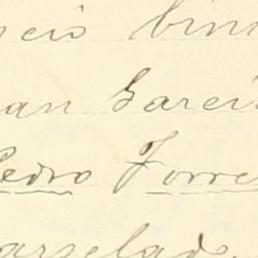 ncio bin
an Garci
Pedro Torre
arselado